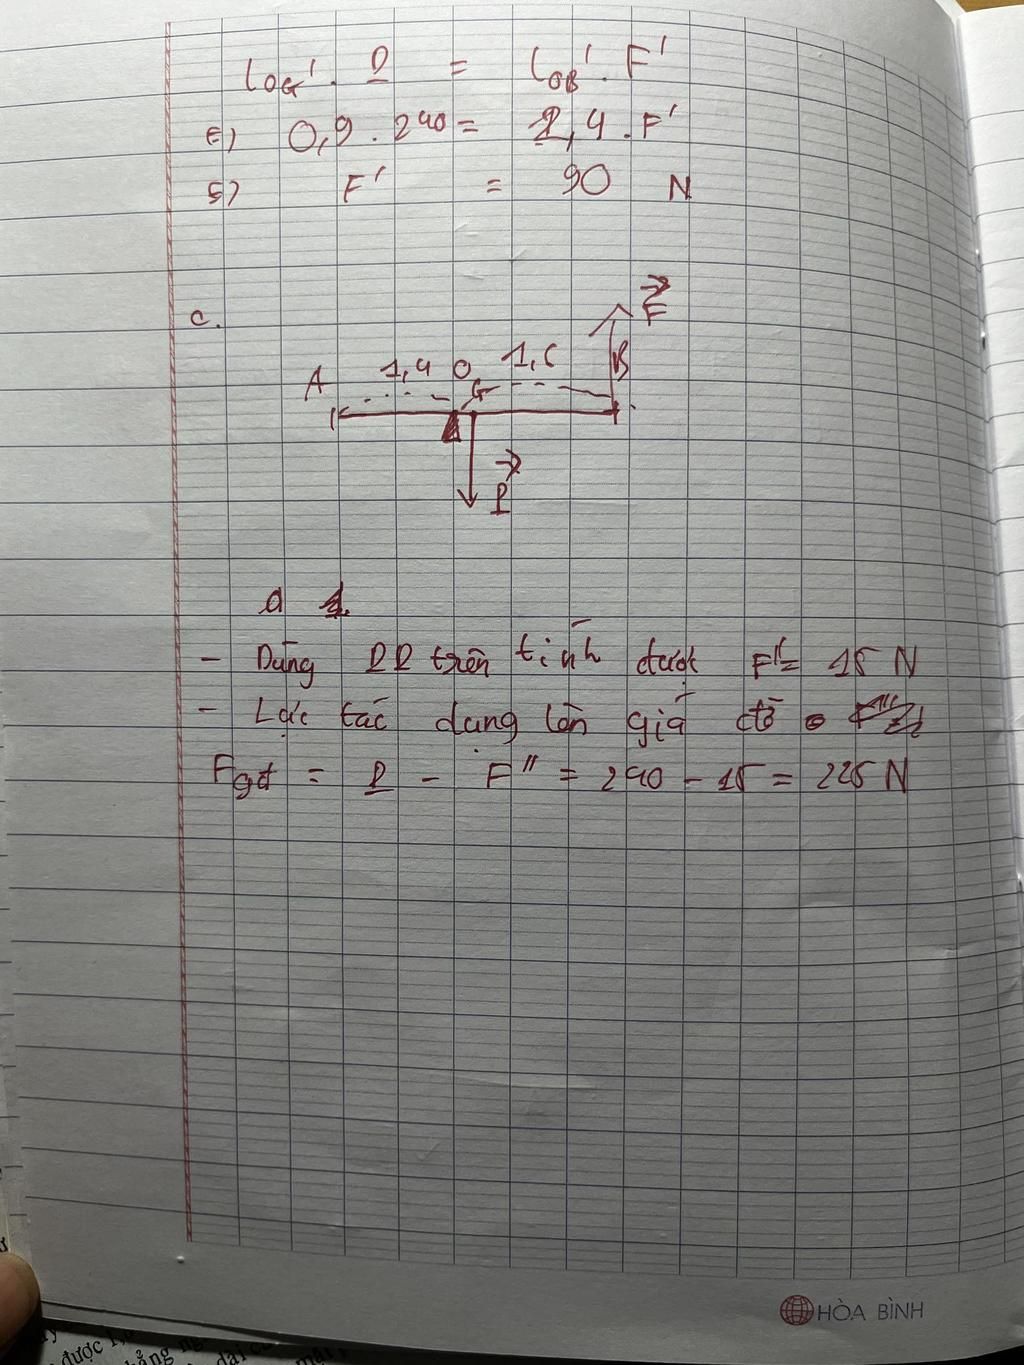 lOG'. P = lOB'. F'
(=) 0,9 . 240 = 2,4 . F'
(=) F' = 90 N
c.
F
A 1,4 O 1,6 B
G
P
- Dùng PP trên tính được F'' = 15 N
- Lực tác dụng lên giá đỡ
Fgđ = P - F'' = 240 - 15 = 225 N
HÒA BÌNH
được 1,